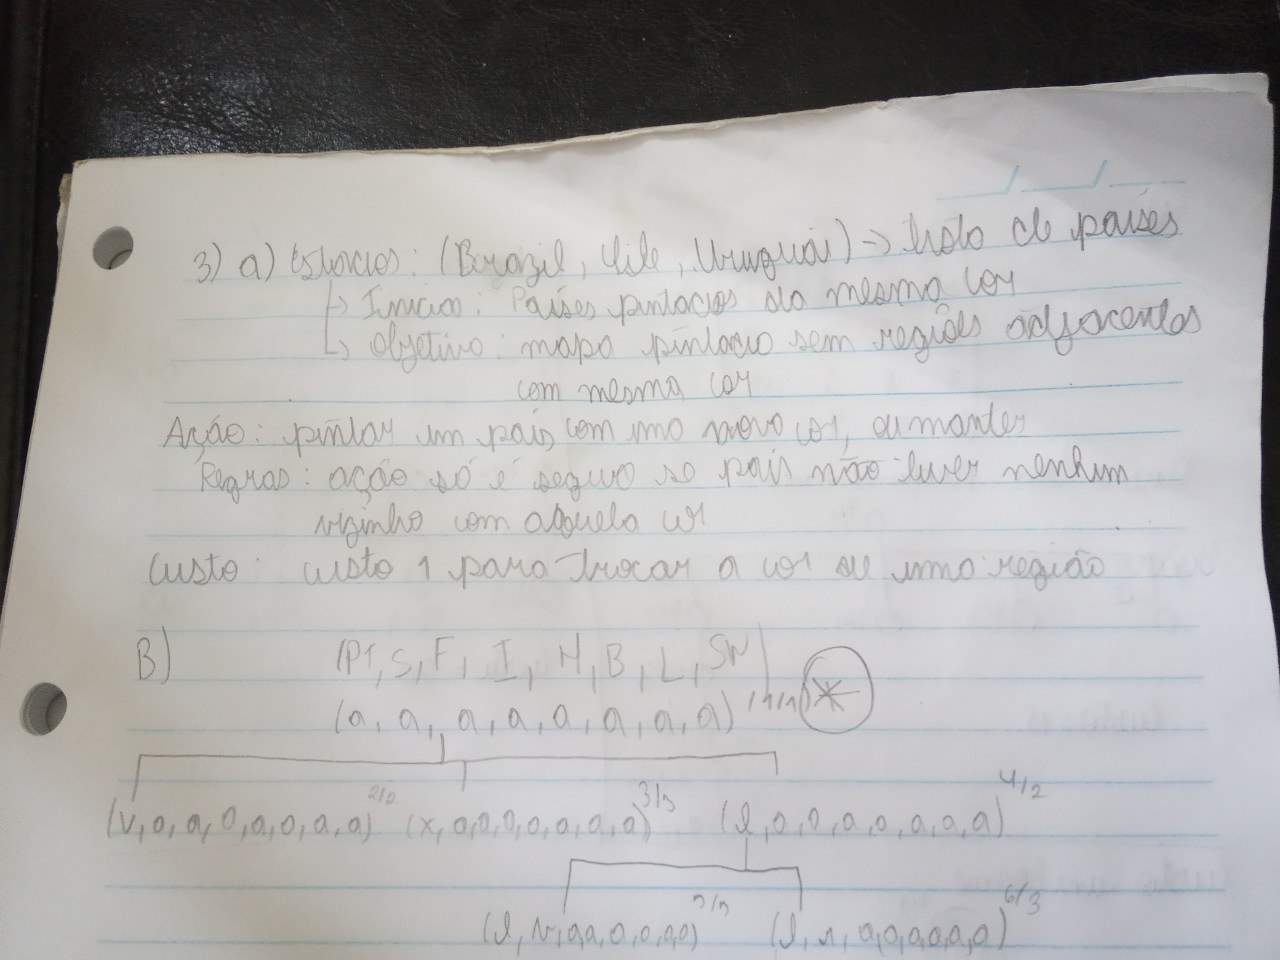 3) a) Estados: (Brazil, Chile, Uruguai) → lista de países
↳ Inicio: Países pintados da mesma cor
↳ Objetivo: mapa pintado sem regiões adjacentes
com mesma cor
Ação: pintar um país com uma nova cor, ou manter
Regras: ação só é segura se país não tiver nenhum
vizinho com aquela cor
Custo: custo 1 para trocar a cor de uma região
B) (PT, S, F, I, H, B, L, SW)
(a, a, a, a, a, a, a, a) 1/1 *
(v, a, a, a, a, a, a, a) 2/2 (x, a, a, a, a, a, a, a) 3/3 (l, a, a, a, a, a, a, a) 4/2
(l, v, a, a, a, a, a, a) (l, a, a, a, a, a, a) 6/3